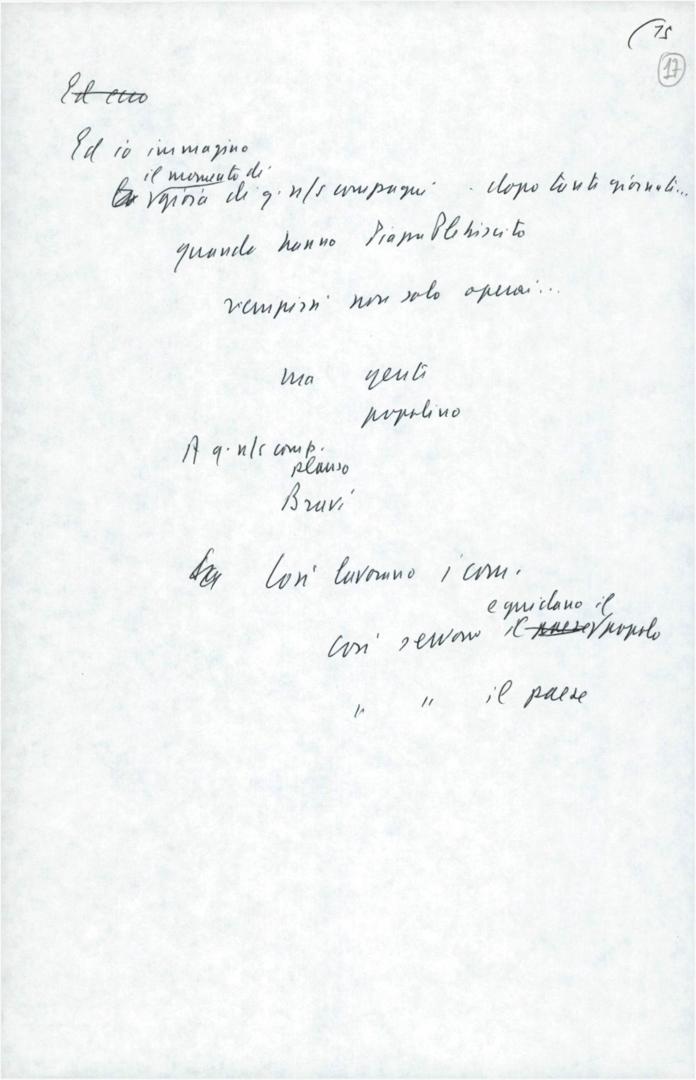 (15
17
Ed ecco
Ed io immagino
il momento di
la gioia di q. n/s compagni . dopo tante giornate...
quando hanno Piazza Plebiscito
riempirsi non solo operai...
ma genti
popolino
A q. n/s comp.
plauso
Bravi
Così lavorano i com.
e guidano il
così servono il paese popolo
" " il paese